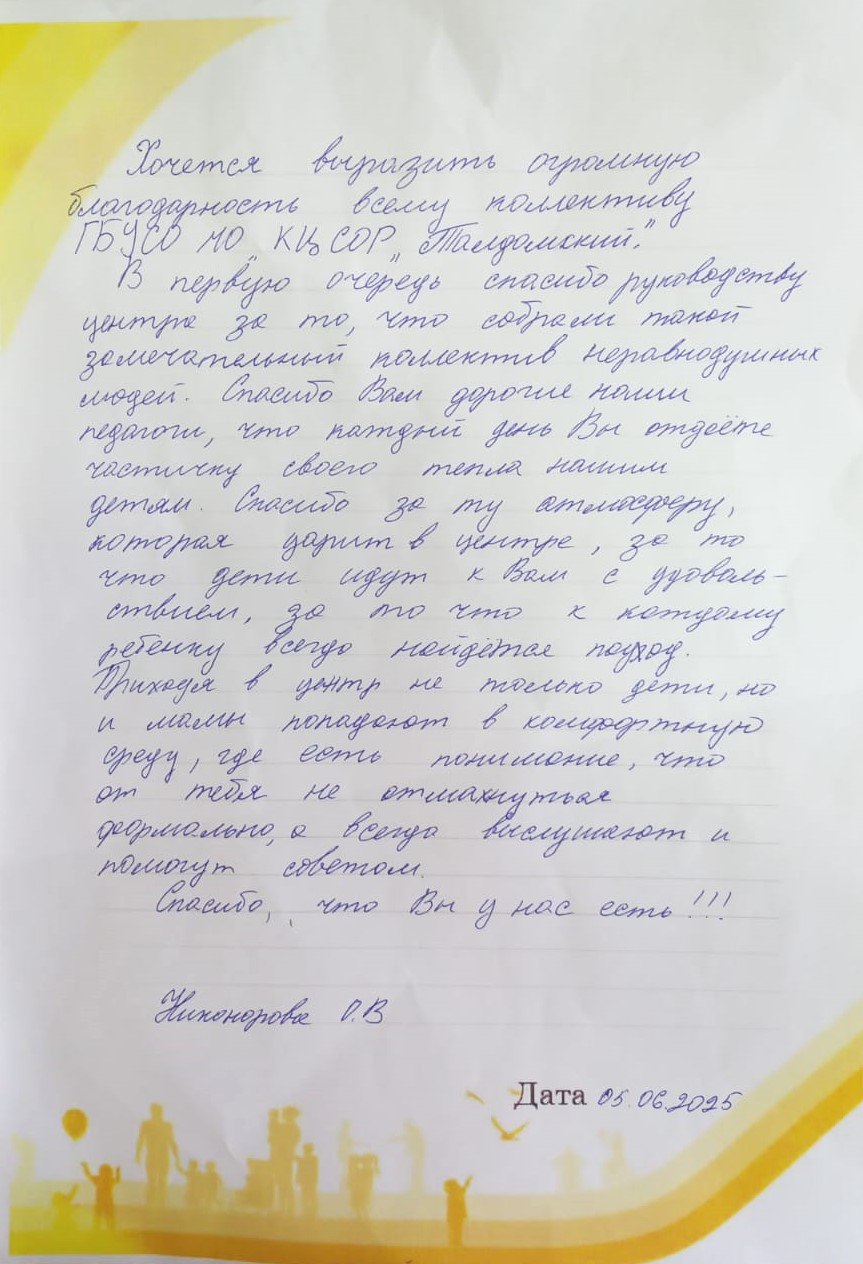 Хочется выразить огромную
благодарность всему коллективу
ГБУСО МО КЦСОР "Талдомский".
В первую очередь спасибо руководству
центра за то, что собрали такой
замечательный коллектив неравнодушных
людей. Спасибо Вам дорогие наши
педагоги, что каждый день Вы отдаёте
частичку своего тепла нашим
детям. Спасибо за ту атмосферу,
которая царит в центре, за то
что дети идут к Вам с удоволь-
ствием, за то что к каждому
ребенку всегда найдётся подход.
Приходя в центр не только дети, но
и мамы попадают в комфортную
среду, где есть понимание, что
от тебя не отмахнуться
формально, а всегда выслушают и
помогут советом.
Спасибо, что Вы у нас есть!!!
Никонорова О.В
Дата 05.06.2025